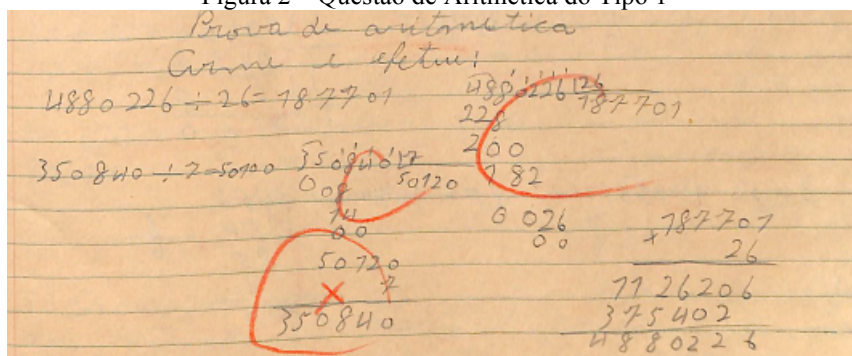 Figura 2 – Questão de Aritmética do Tipo 1
Prova de aritmetica
Arme e efetue:
4880226 ÷ 26 = 187701
4880226 26
187701
228
200
182
0 026
00
350840 ÷ 7 = 50120
350840 7
008 50120
14
00
50120
7
350840
187701
× 26
1126206
375402
4880226